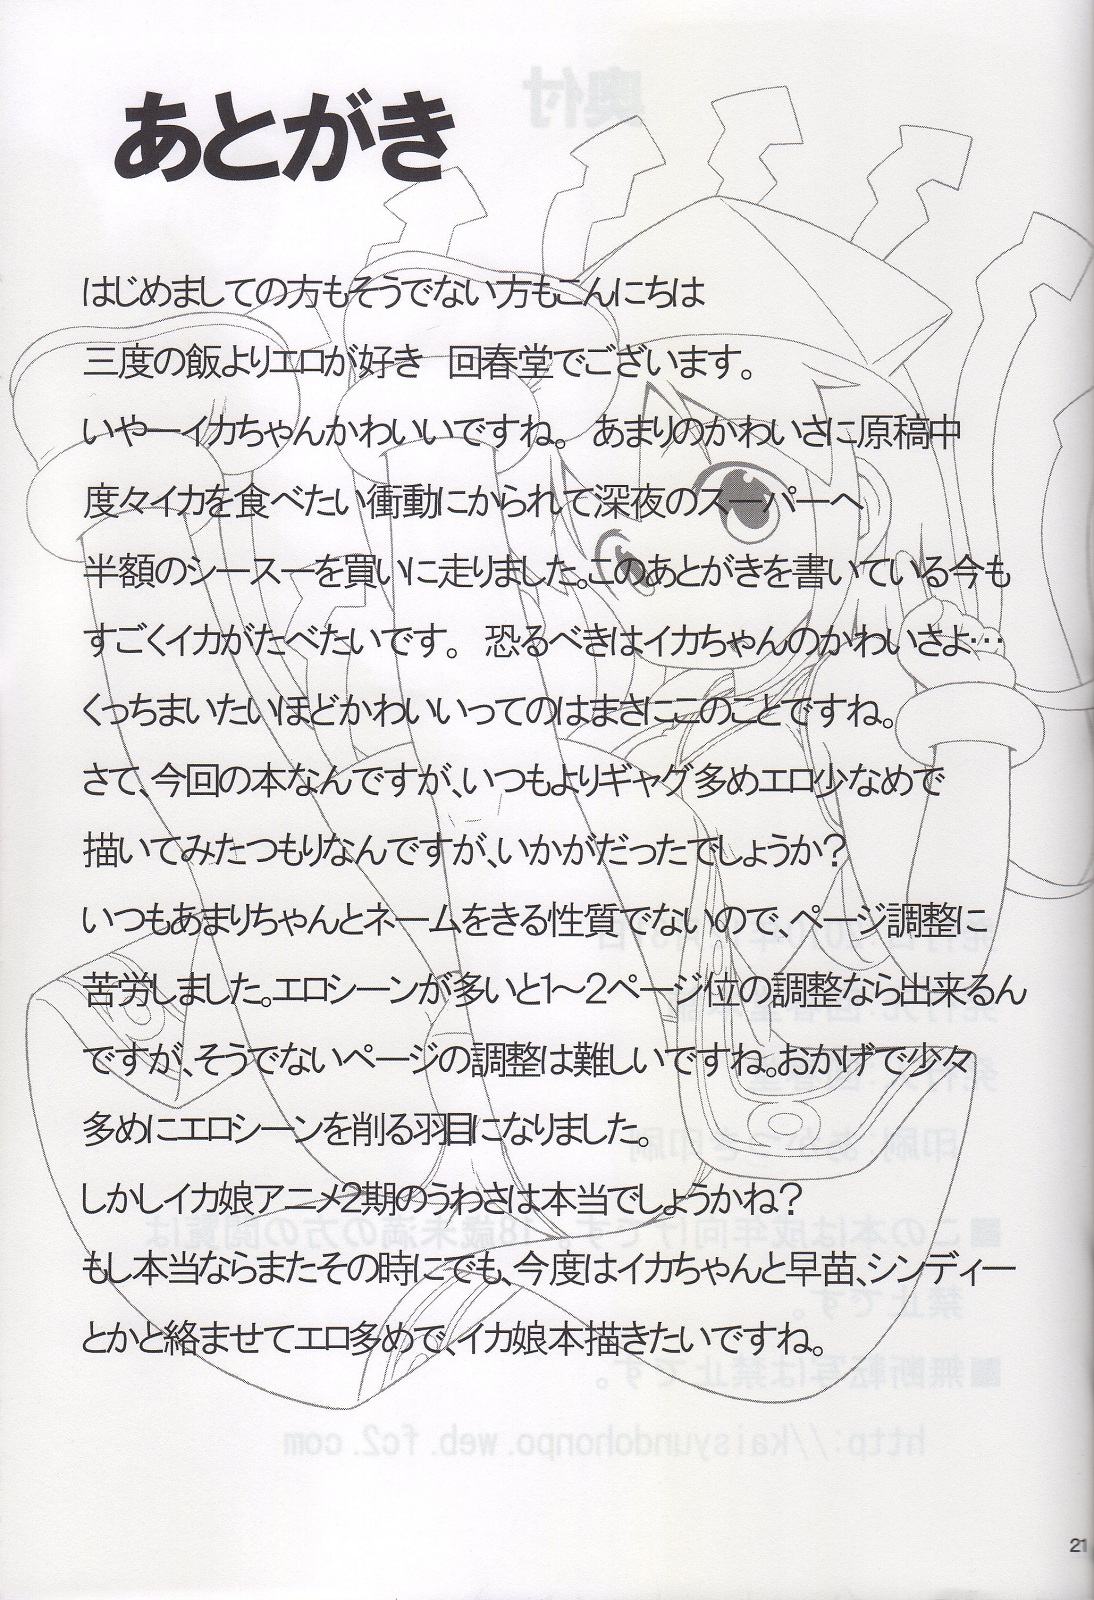 あとがき
はじめましての方もそうでない方もこんにちは
三度の飯よりエロが好き　回春堂でございます。
いやーイカちゃんかわいいですね。 あまりのかわいさに原稿中
度々イカを食べたい衝動にかられて深夜のスーパーへ
半額のシースーを買いに走りました。このあとがきを書いている今も
すごくイカがたべたいです。 恐るべきはイカちゃんのかわいさよ…
くっちまいたいほどかわいいってのはまさにこのことですね。
さて、今回の本なんですが、いつもよりギャグ多めエロ少なめで
描いてみたつもりなんですが、いかがだったでしょうか？
いつもあまりちゃんとネームをきる性質でないので、ページ調整に
苦労しました。エロシーンが多いと1～2ページ位の調整なら出来るん
ですが、そうでないページの調整は難しいですね。おかげで少々
多めにエロシーンを削る羽目になりました。
しかしイカ娘アニメ2期のうわさは本当でしょうかね？
もし本当ならまたその時にでも、今度はイカちゃんと早苗、シンディー
とかと絡ませてエロ多めで、イカ娘本描きたいですね。
21